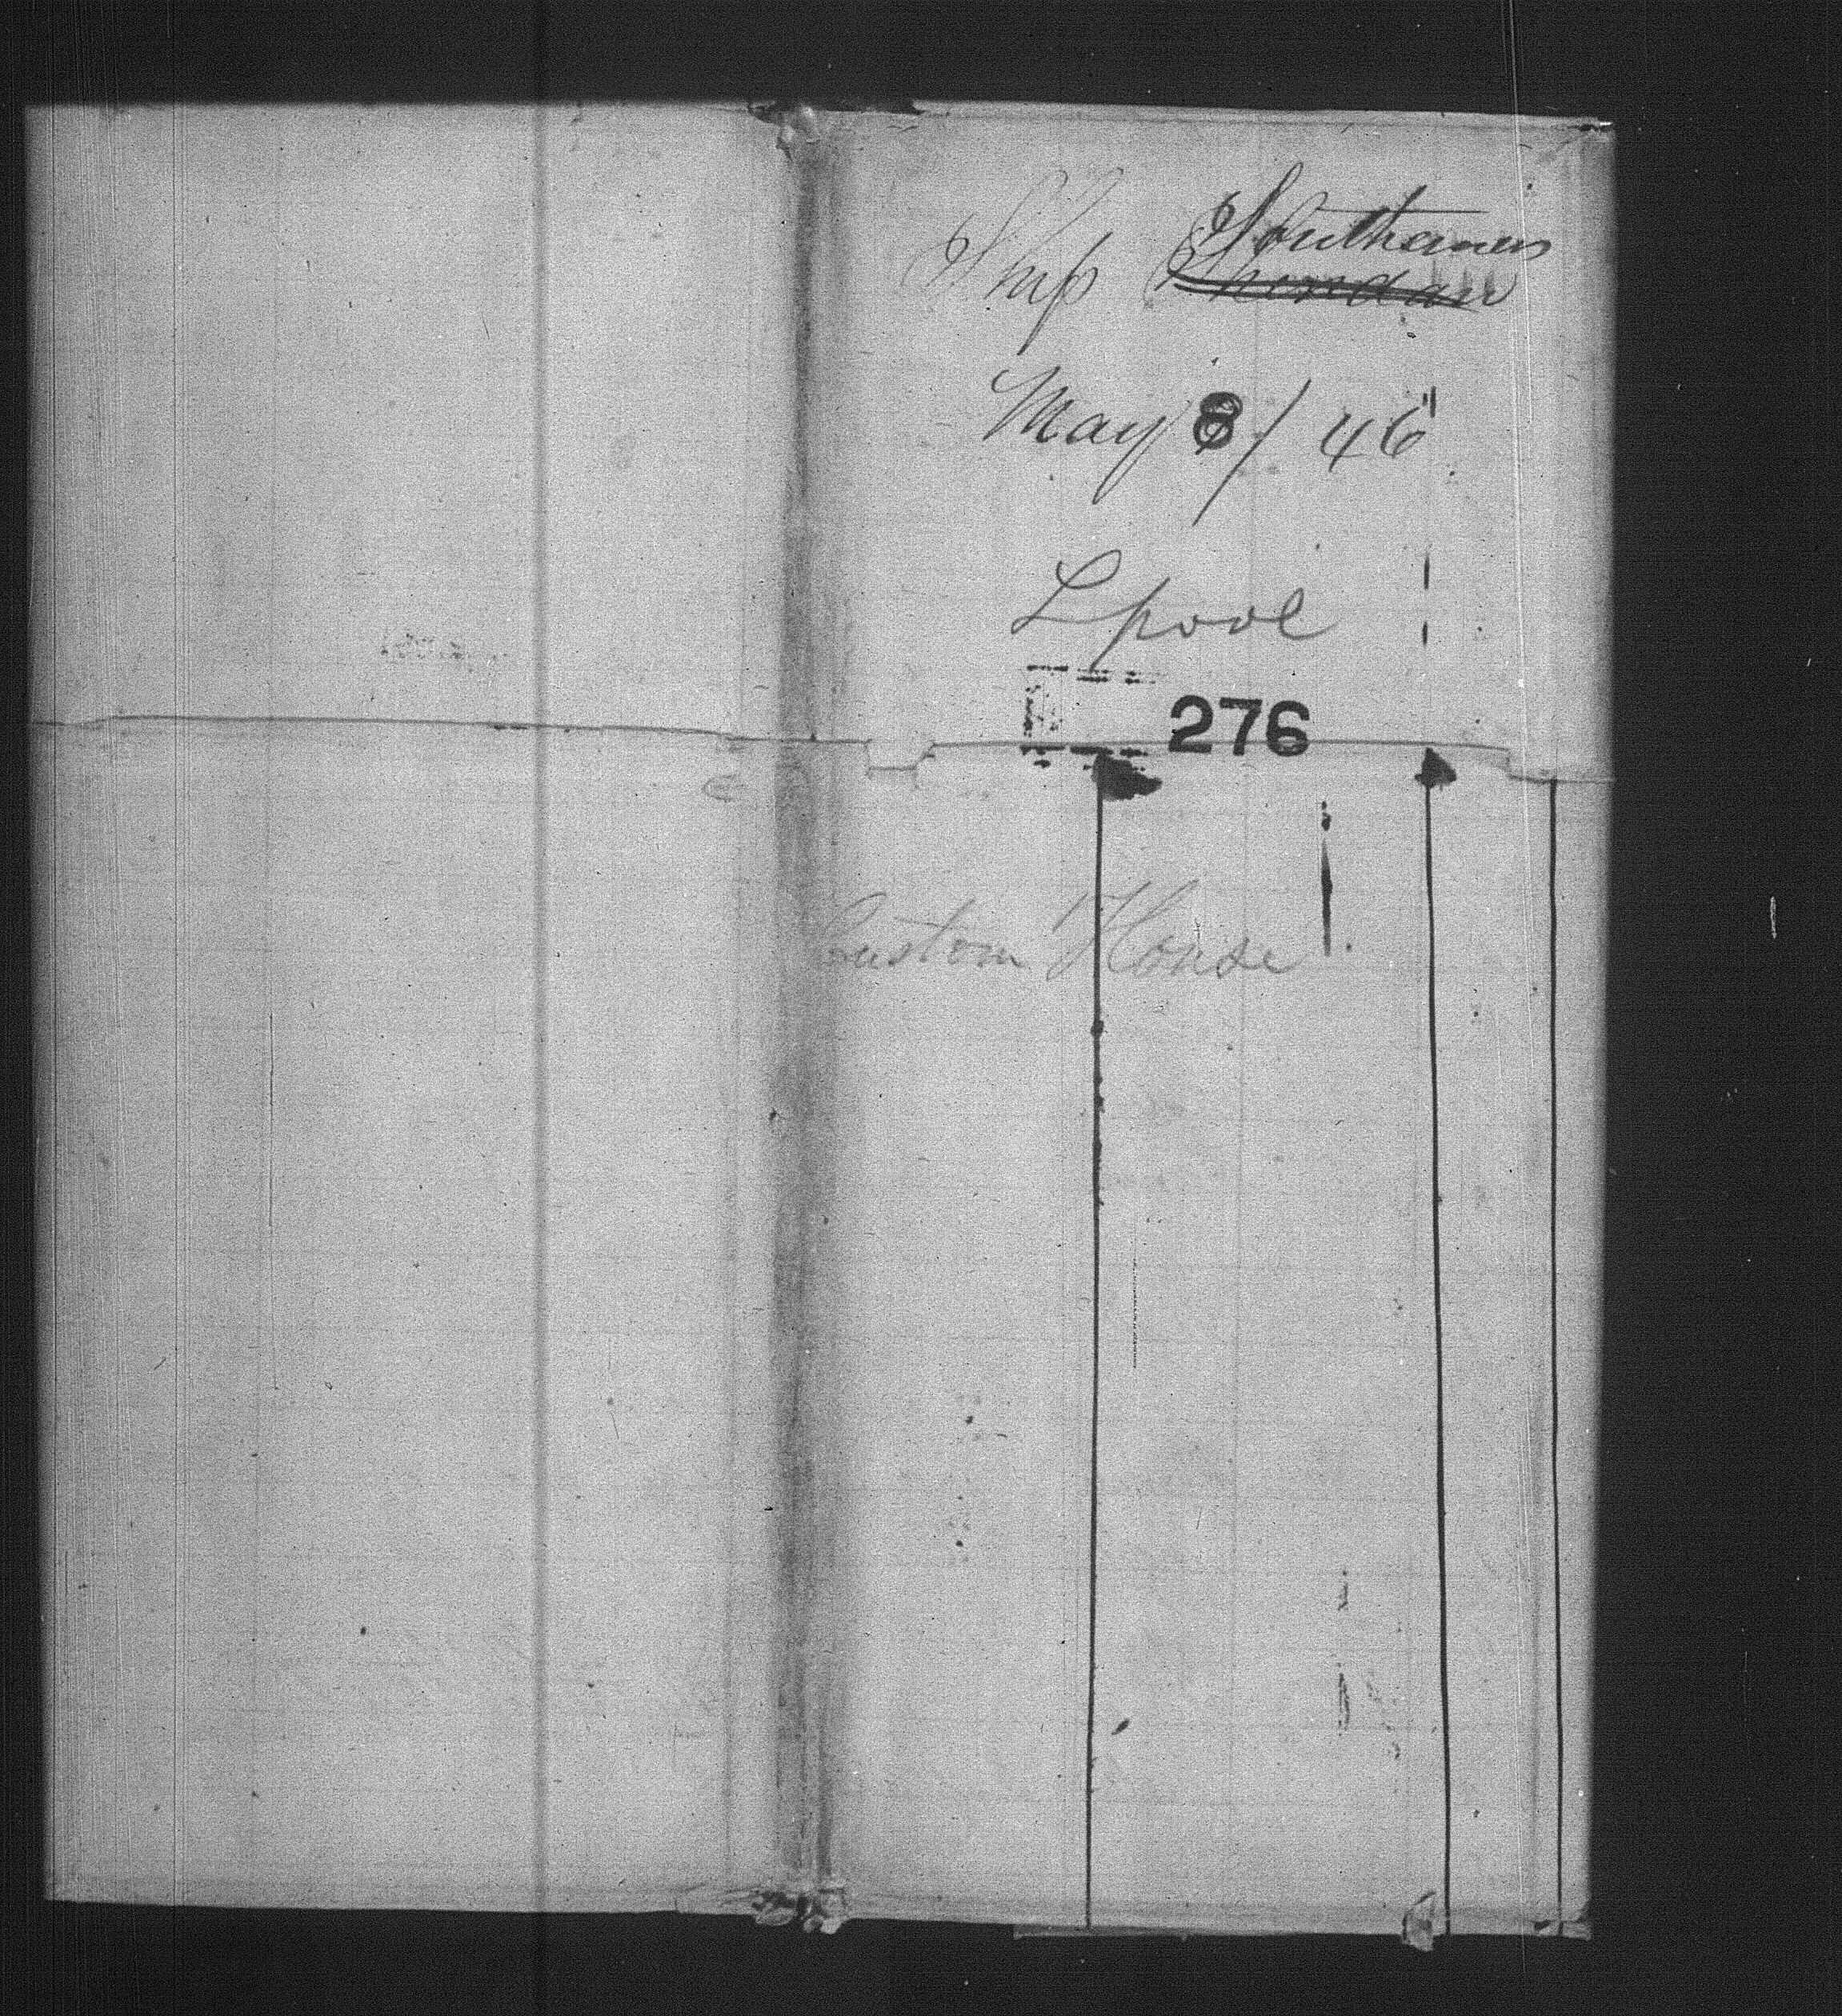 Ship Southerner
Sheridan
May 8/46
Lpool
276
Custom House